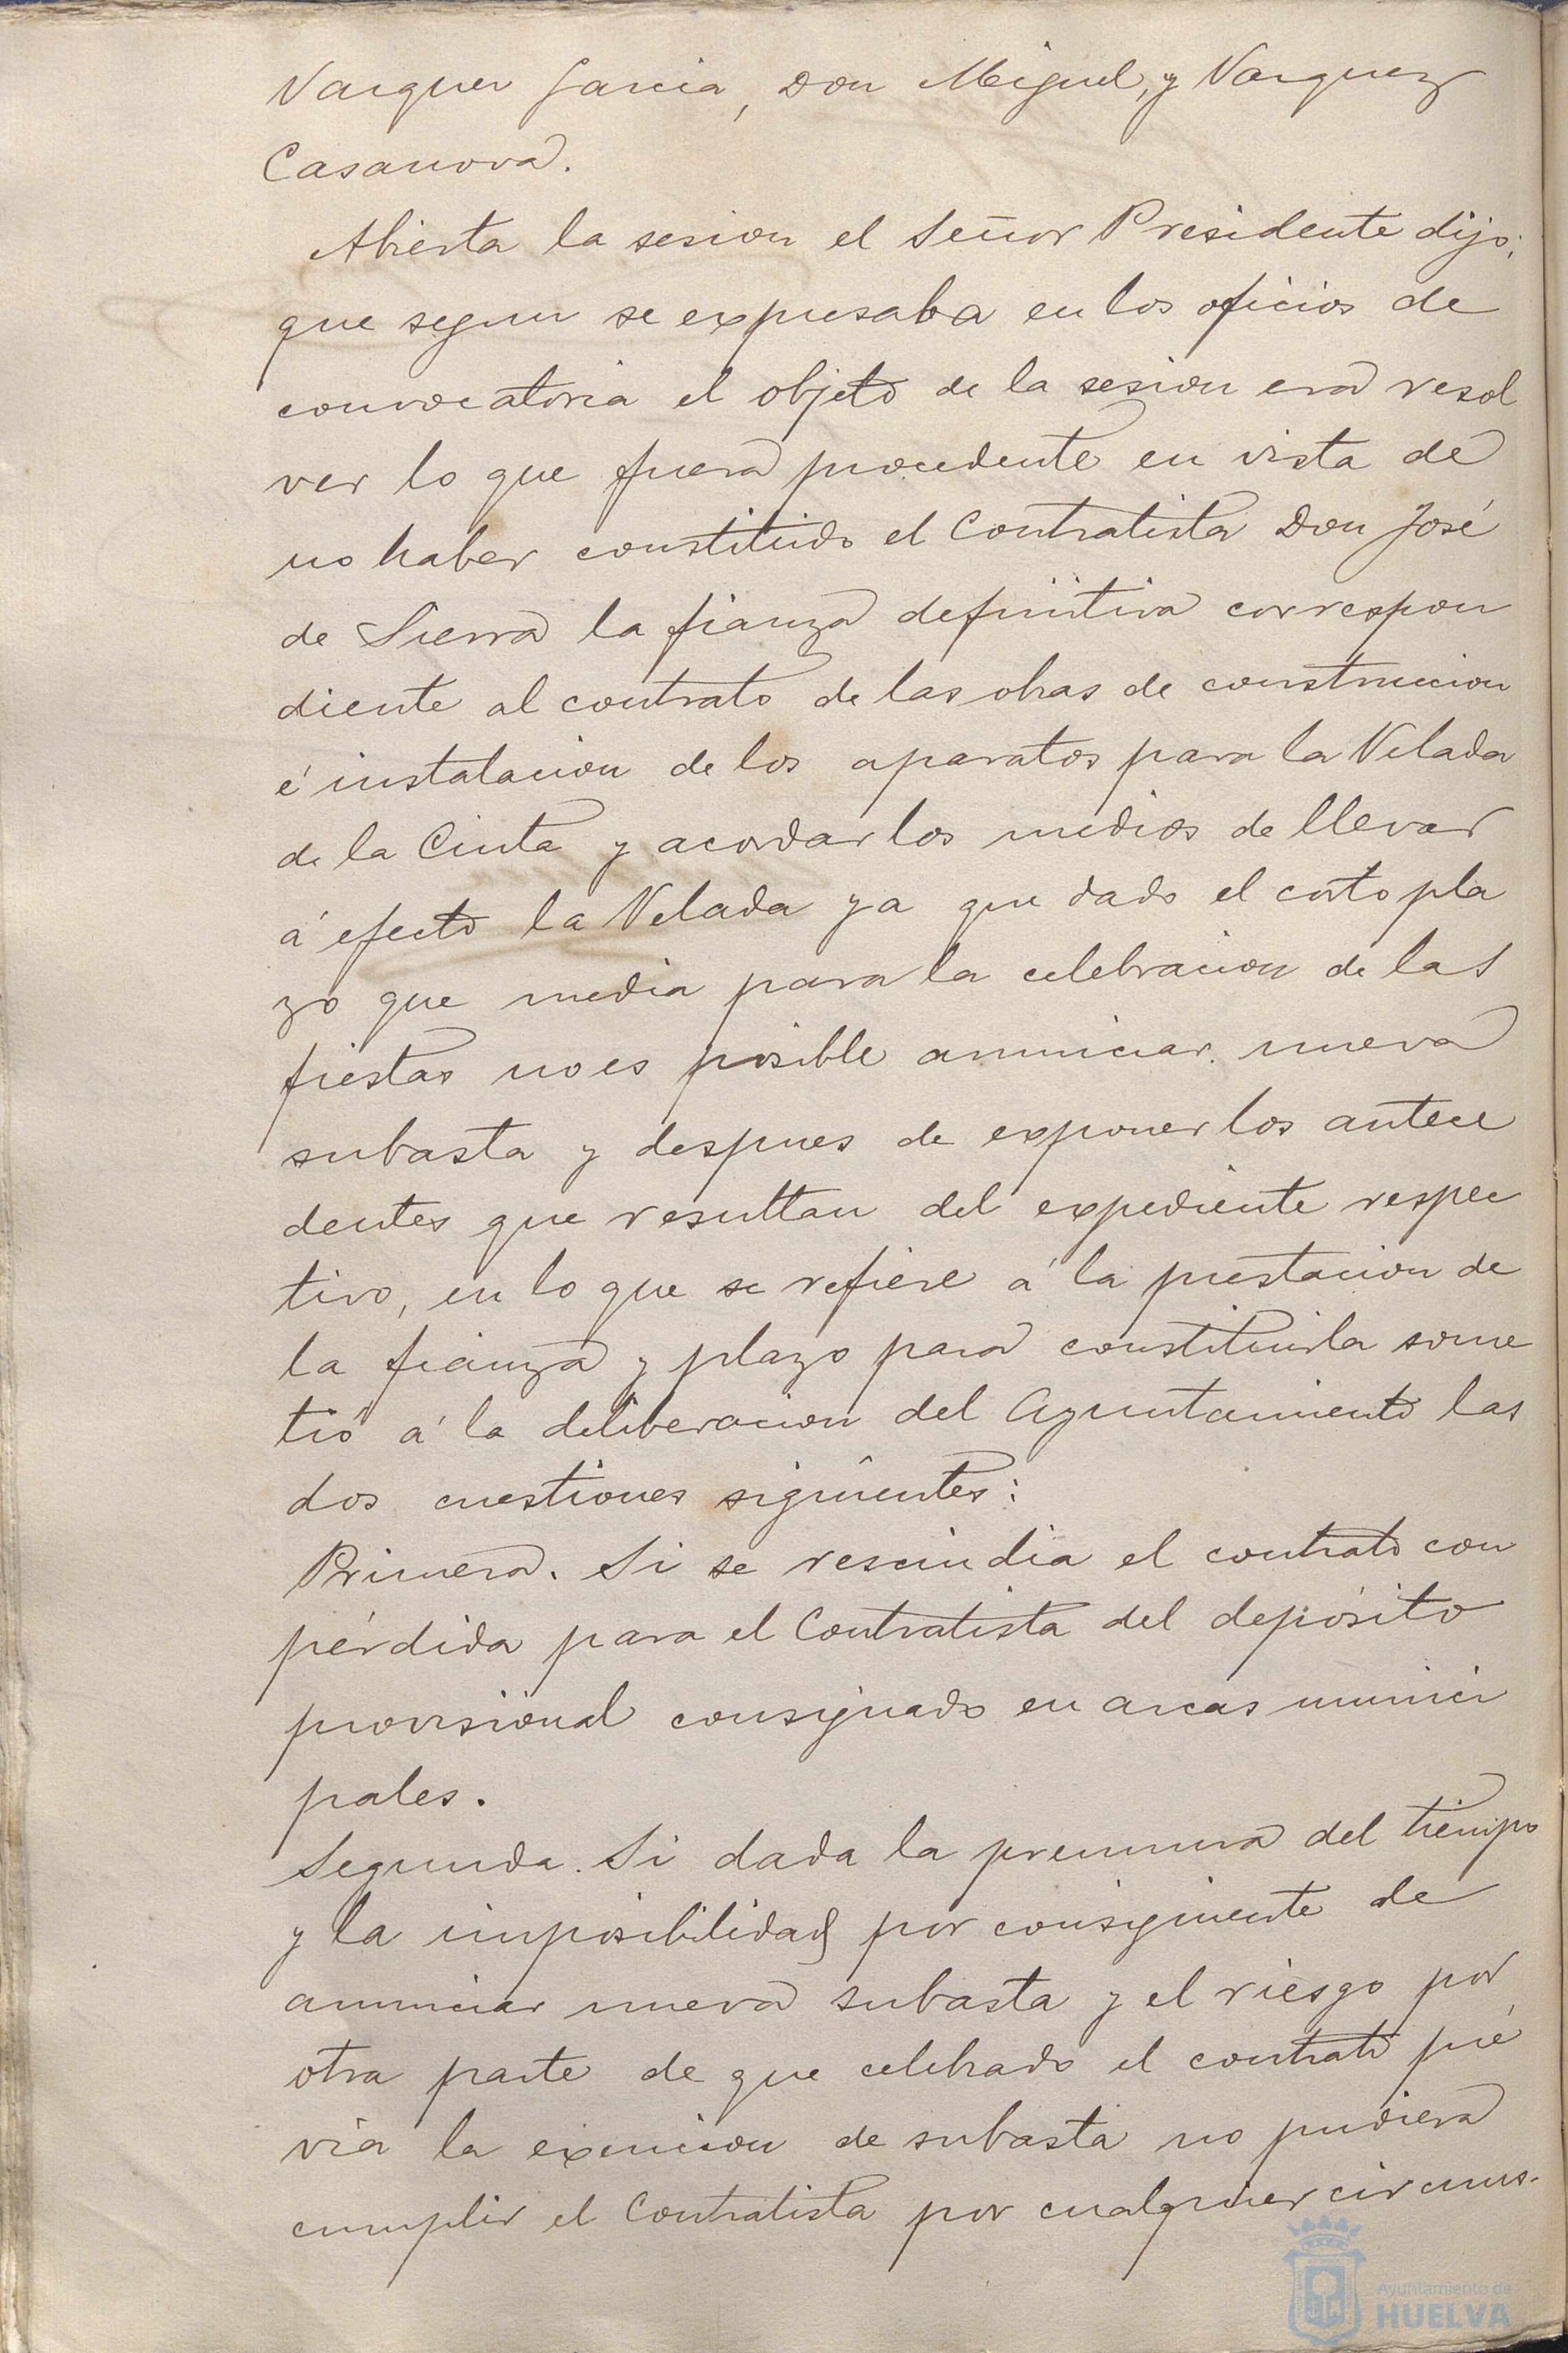 Vazquez Garcia, Don Miguel, y Vazquez
Casanova.
Abierta la sesion el Señor Presidente dijo:
que segun se expresaba en los oficios de
convocatoria el objeto de la sesion era resol
ver lo que fuera procedente en vista de
no haber constituido el Contratista Don José
de Sierra la fianza definitiva correspon
diente al contrato de las obras de construccion
é instalacion de los aparatos para la Velada
de la Cinta y acordar los medios de llevar
á efecto la Velada ya que dado el corto pla
zo que media para la celebracion de las
fiestas no es posible anunciar nueva
subasta y despues de exponer los antece
dentes que resultan del expediente respec
tivo, en lo que se refiere á la prestacion de
la fianza y plazo para constituirla some
tió á la deliberacion del Ayuntamiento las
dos cuestiones sigüientes:
Primera. Si se rescindia el contrato con
pérdida para el Contratista del depósito
provisional consignado en arcas munici
pales.
Segunda. Si dada la premura del tiempo
y la imposibilidad por consiguiente de
anunciar nueva subasta y el riesgo por
otra parte de que celebrado el contrato pré
via la exencion de subasta no pudiera
cumplir el Contratista por cualquier circuns-
Ayuntamiento de
HUELVA